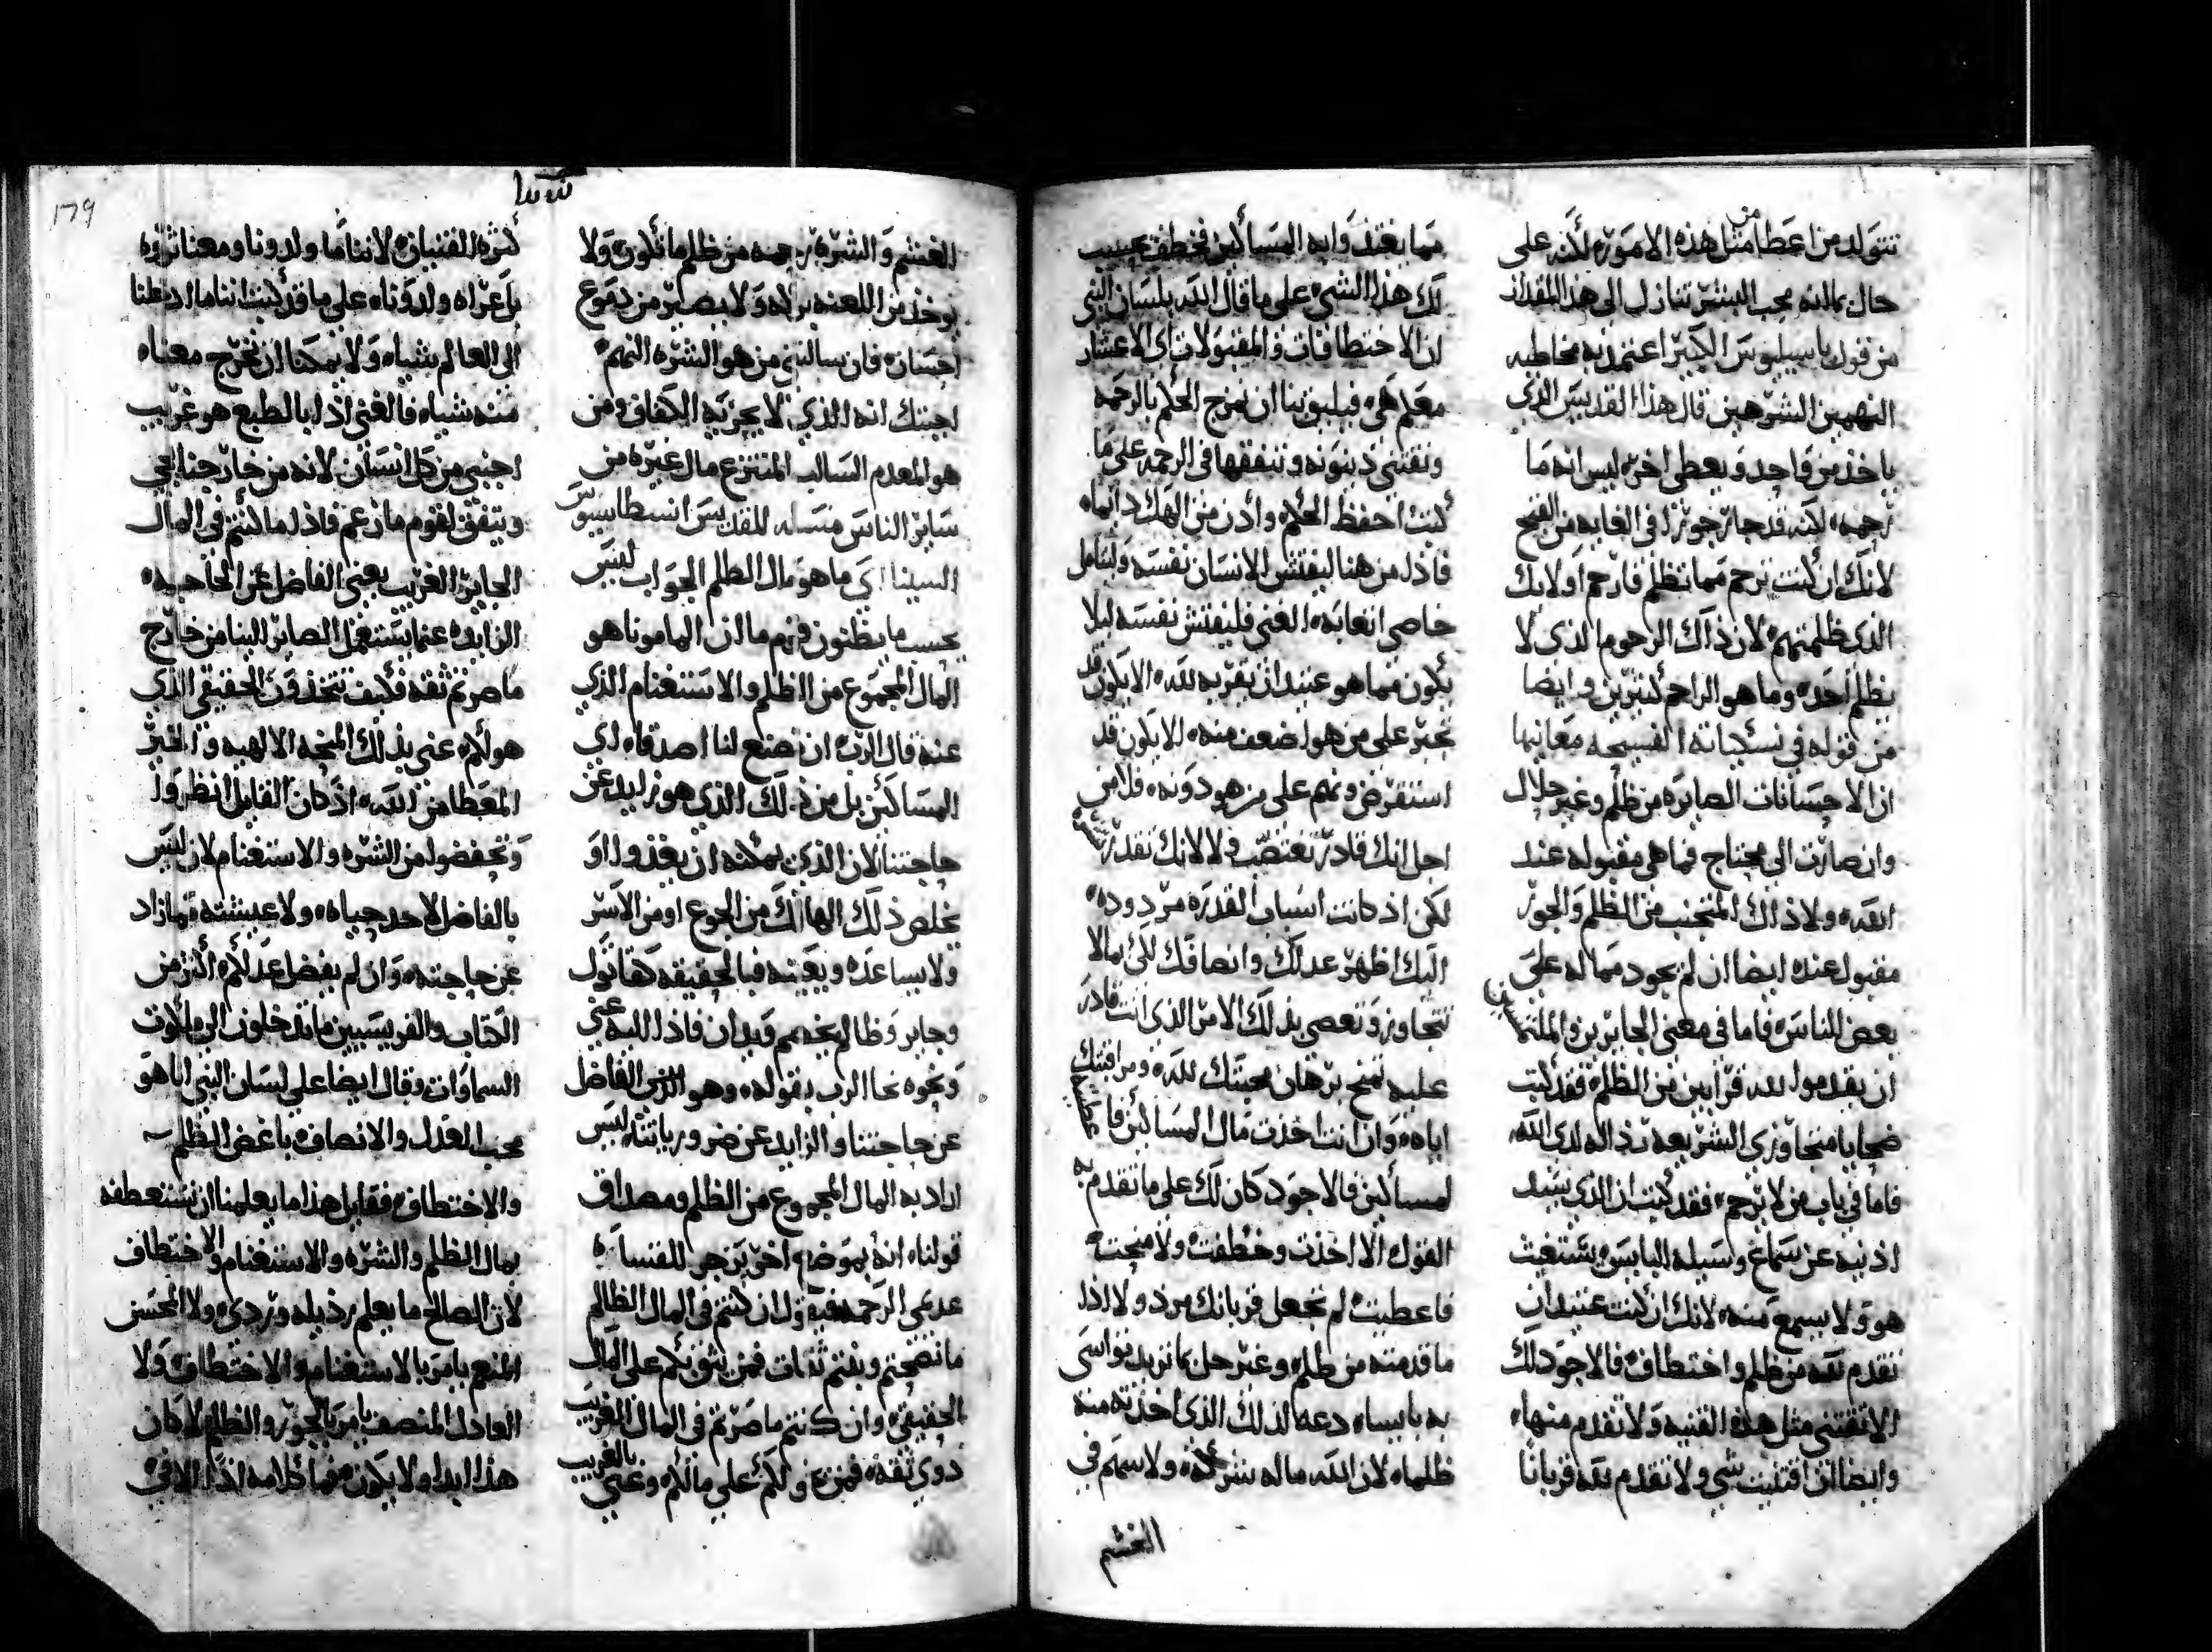 تتولد من اعطا من مثل هذه الاموره لكنه على
حال بما انه محب البشر تنازل الى هذا المقدار
من قول باسيليوس الكبير اعتمد به مخاطبه
النهمين الشرهين قال هذا القديس الذي
ياخذ من واحد ويعطي اخره ليس انه ما
رحمه لكنه قد جار جورًا في الغايه من القبح
لانك ان كنت ترحم مما تظلم فارحم اولا ذلك
الذي ظلمتهم لان ذاك الرحوم الذي لا
يظلم احده وما هو الراحم كثيرين وايضا
من قوله في نسكياته الفسيحه معانيها
ان الاحسانات الصايره من ظلم وغير حلال
وان صارت الى محتاج فما هي مقبوله عند
الله ولا ذاك المتجنب من الظلم والجور
مقبول عنده ايضا ان لم يجود مما له على
بعض الناس فاما في معنى الجايرين والملتمسين
ان يقدموا لله قرابين من الظلم فقد كتب
ضحايا متجاوزي الشريعه رذاله لدى الله
فاما في باب من لا يرحم فقد كتب ان الذي يسد
اذنيه عن سماع وسيله البايس يستغيث
هو ولا يسمع منه لانك ان كنت عتيد ان
تقدم لله من ظلم واختطاف فالاجود لك
الا تقتني مثل هذه القنيه ولا تقدم منها
وايضا ان اقتنيت شي ولا تقدم لله قربانًا
مما يغتذوا به المساكين فخطفت حينيذ
لك هذا الشي على ما قال الله بلسان النبي
ان الاختطافات والمقبولات اي الاعشار
معلم هي فيليق بنا ان نمزج الحكم بالرحمه
ونقتني دينونه وننفقها في الرحمه على ما
كتب احفظ الحكم وادن من الهك دايما
فاذا من هنا ليفتش الانسان نفسه وليتامل
خاصي اتعابه الغني فليفتش نفسه ليلا
يكون مما هو عتيد ان يقربه لله الا يكون قد
تجبر على من هو اضعف منه الا يكون قد
استقرض ونهم على من هو دونه فلا من
اجل انك قادر تغتصب ولا لانك تقدر تشره
لكن اذ كانت اسباب القدره مردوده
اليك اظهر عدلك وانصافك لكي بما لا
تتجاوز وتعصي بذلك الامر الذي انت قادر
عليه تمنح برهان محبتك لله ومراقبتك
اياه وان انت اخذت مال المساكين فاعطيته
لمساكين فالاجود كان لك على ما تقدم به
القول الا اخذت وخطفت ولا منحت
فاعطيت لم تجعل قربانك مردولا اذا
ما قدمته من ظلم وغير حل بما تريد تواسي
به بايساه دعه لذلك الذي اخذته منه
ظلماه لان الله ماله شركه ولا سهم في
الغشم
الغشم والشره ترحمه من ظلم ما تكون ولا
يوخذ من اللعنه بركه ولا يصير من دموع
احسان فان سالتني من هو الشره النهم
اجبتك انه الذي لا يجزيه الكفاف ومن
هو المعدم السالب المنتزع مال غيره من
ساير الناس مسله للقديس انسطاسيوس
السينا اي ما هو مال الظلم الجواب ليس
بحسب ما يظنون قوم ما ان المامونا هو
المال المجموع من الظلم والاستغنام الذي
عنه قال الرب ان نصنع لنا اصدقاه لي
المساكين بل من ذلك الذي هو زايد عن
حاجتنا لان الذي يمكنه ان يغذوا او
يخلص ذلك الهالك من الجوع او من الاسر
ولا يساعده ويعينه فبالحقيقه كقاتول
وجاير وظالم يخصم ويدان فاذا للبه عني
ونحوه نحا الرب بقوله وهو الذي الفاضل
عن حاجتنا والزايد عن ضرورياتنا ليس
اراد به المال المجموع من الظلم ومصداق
قولنا انه بموضع اخر يزجر للقسا
عدمي الرحمه فيقول ان كنتم في المال الظالم
ما نصحتم وبقتم ثقات فمن يثق بكم على المال
الحقيقي وان كنتم ما صرتم في المال الغريب
ذوي ثقه فمن يولكم على مالكم وعني بالغريب
كثره القنيان لاننا ما ولدونا ومعنا ثروه
بل عراه ولدوناه على ما قد كتب اننا ما ادخلنا
الى العالم شياه ولا يمكنا ان نخرج معناه
منه شياه فالغنى اذا بالطبع هو غريب
اجنبي من كل انسان لانه من خارجنا يجي
ويتفق لقوم ما زعم فاذا ما كنتم في المال
الجاير الغريب يعني الفاضل عن الحاجه
الزايده عنما يستعمل الصاير الينا من خارج
ما صرتم ثقه فكيف تتخذون الحقيقي الذي
هو لكم عني بذلك المنحه الالهيه والخير
المعطا من الله اذ كان القايل انظروا
وتحفضوا من الشره والاستغنام لان ليس
بالفاضل لاحد حياه ولا عيشته مما زاد
عن حاجته وان لم يفضل عدلكم اكثر من
الكتاب والفريسيين ما تدخلون الى ملكوت
السماوات وقال ايضا على لسان النبي انا هو
محب العدل والانصاف باغض الظلم
والاختطاف فقايل هذا ما يعلمنا ان نستعطفه
بمال الظلم والشره والاستغنام والاختطاف
لان الصالح ما يعلم برذيله وردي ولا المحسن
المنعم يامر بالاستغنام والاختطاف ولا
العادل المنصف يامر بالجور والظلم لا كان
هذا ابدا ولا يكون فما كلامه اذا الا في
١٦٩